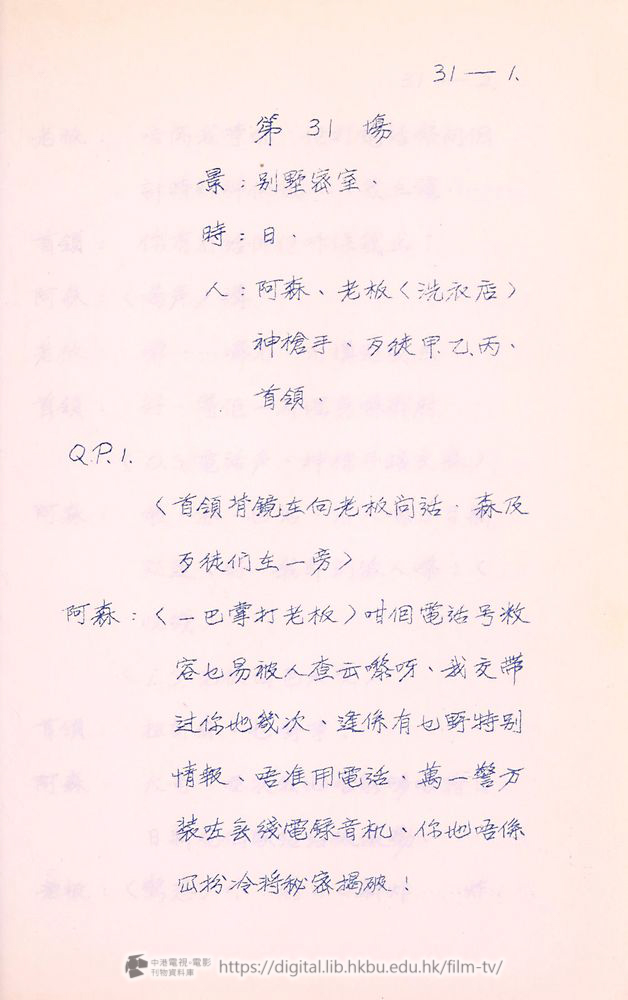 31 — 1.
第 31 場
景：别墅密室、
時：日、
人：阿森、老板〈洗衣店〉
神槍手、歹徒甲乙丙、
首領
Q.P.1.
〈首領背鏡在向老板问话、森及
歹徒们在一旁〉
阿森：〈一巴掌打老板〉咁個電话号数
容乜易被人查出嚟呀、我交帶
过你地幾次、逢係有乜野特别
情報、唔准用電话、萬一警方
装咗無綫電錄音机、你地唔係
冚扮冷将秘密揭破！
中港電視·電影
刊物資料庫
https://digital.lib.hkbu.edu.hk/film-tv/